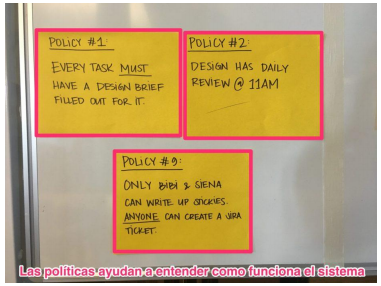 POLICY #1:
EVERY TASK MUST
HAVE A DESIGN BRIEF
FILLED OUT FOR IT.
POLICY #2:
DESIGN HAS DAILY
REVIEW @ 11AM
POLICY #9:
ONLY BIBI & SIENA
CAN WRITE UP STICKIES.
ANYONE CAN CREATE A JIRA
TICKET.
Las políticas ayudan a entender como funciona el sistema